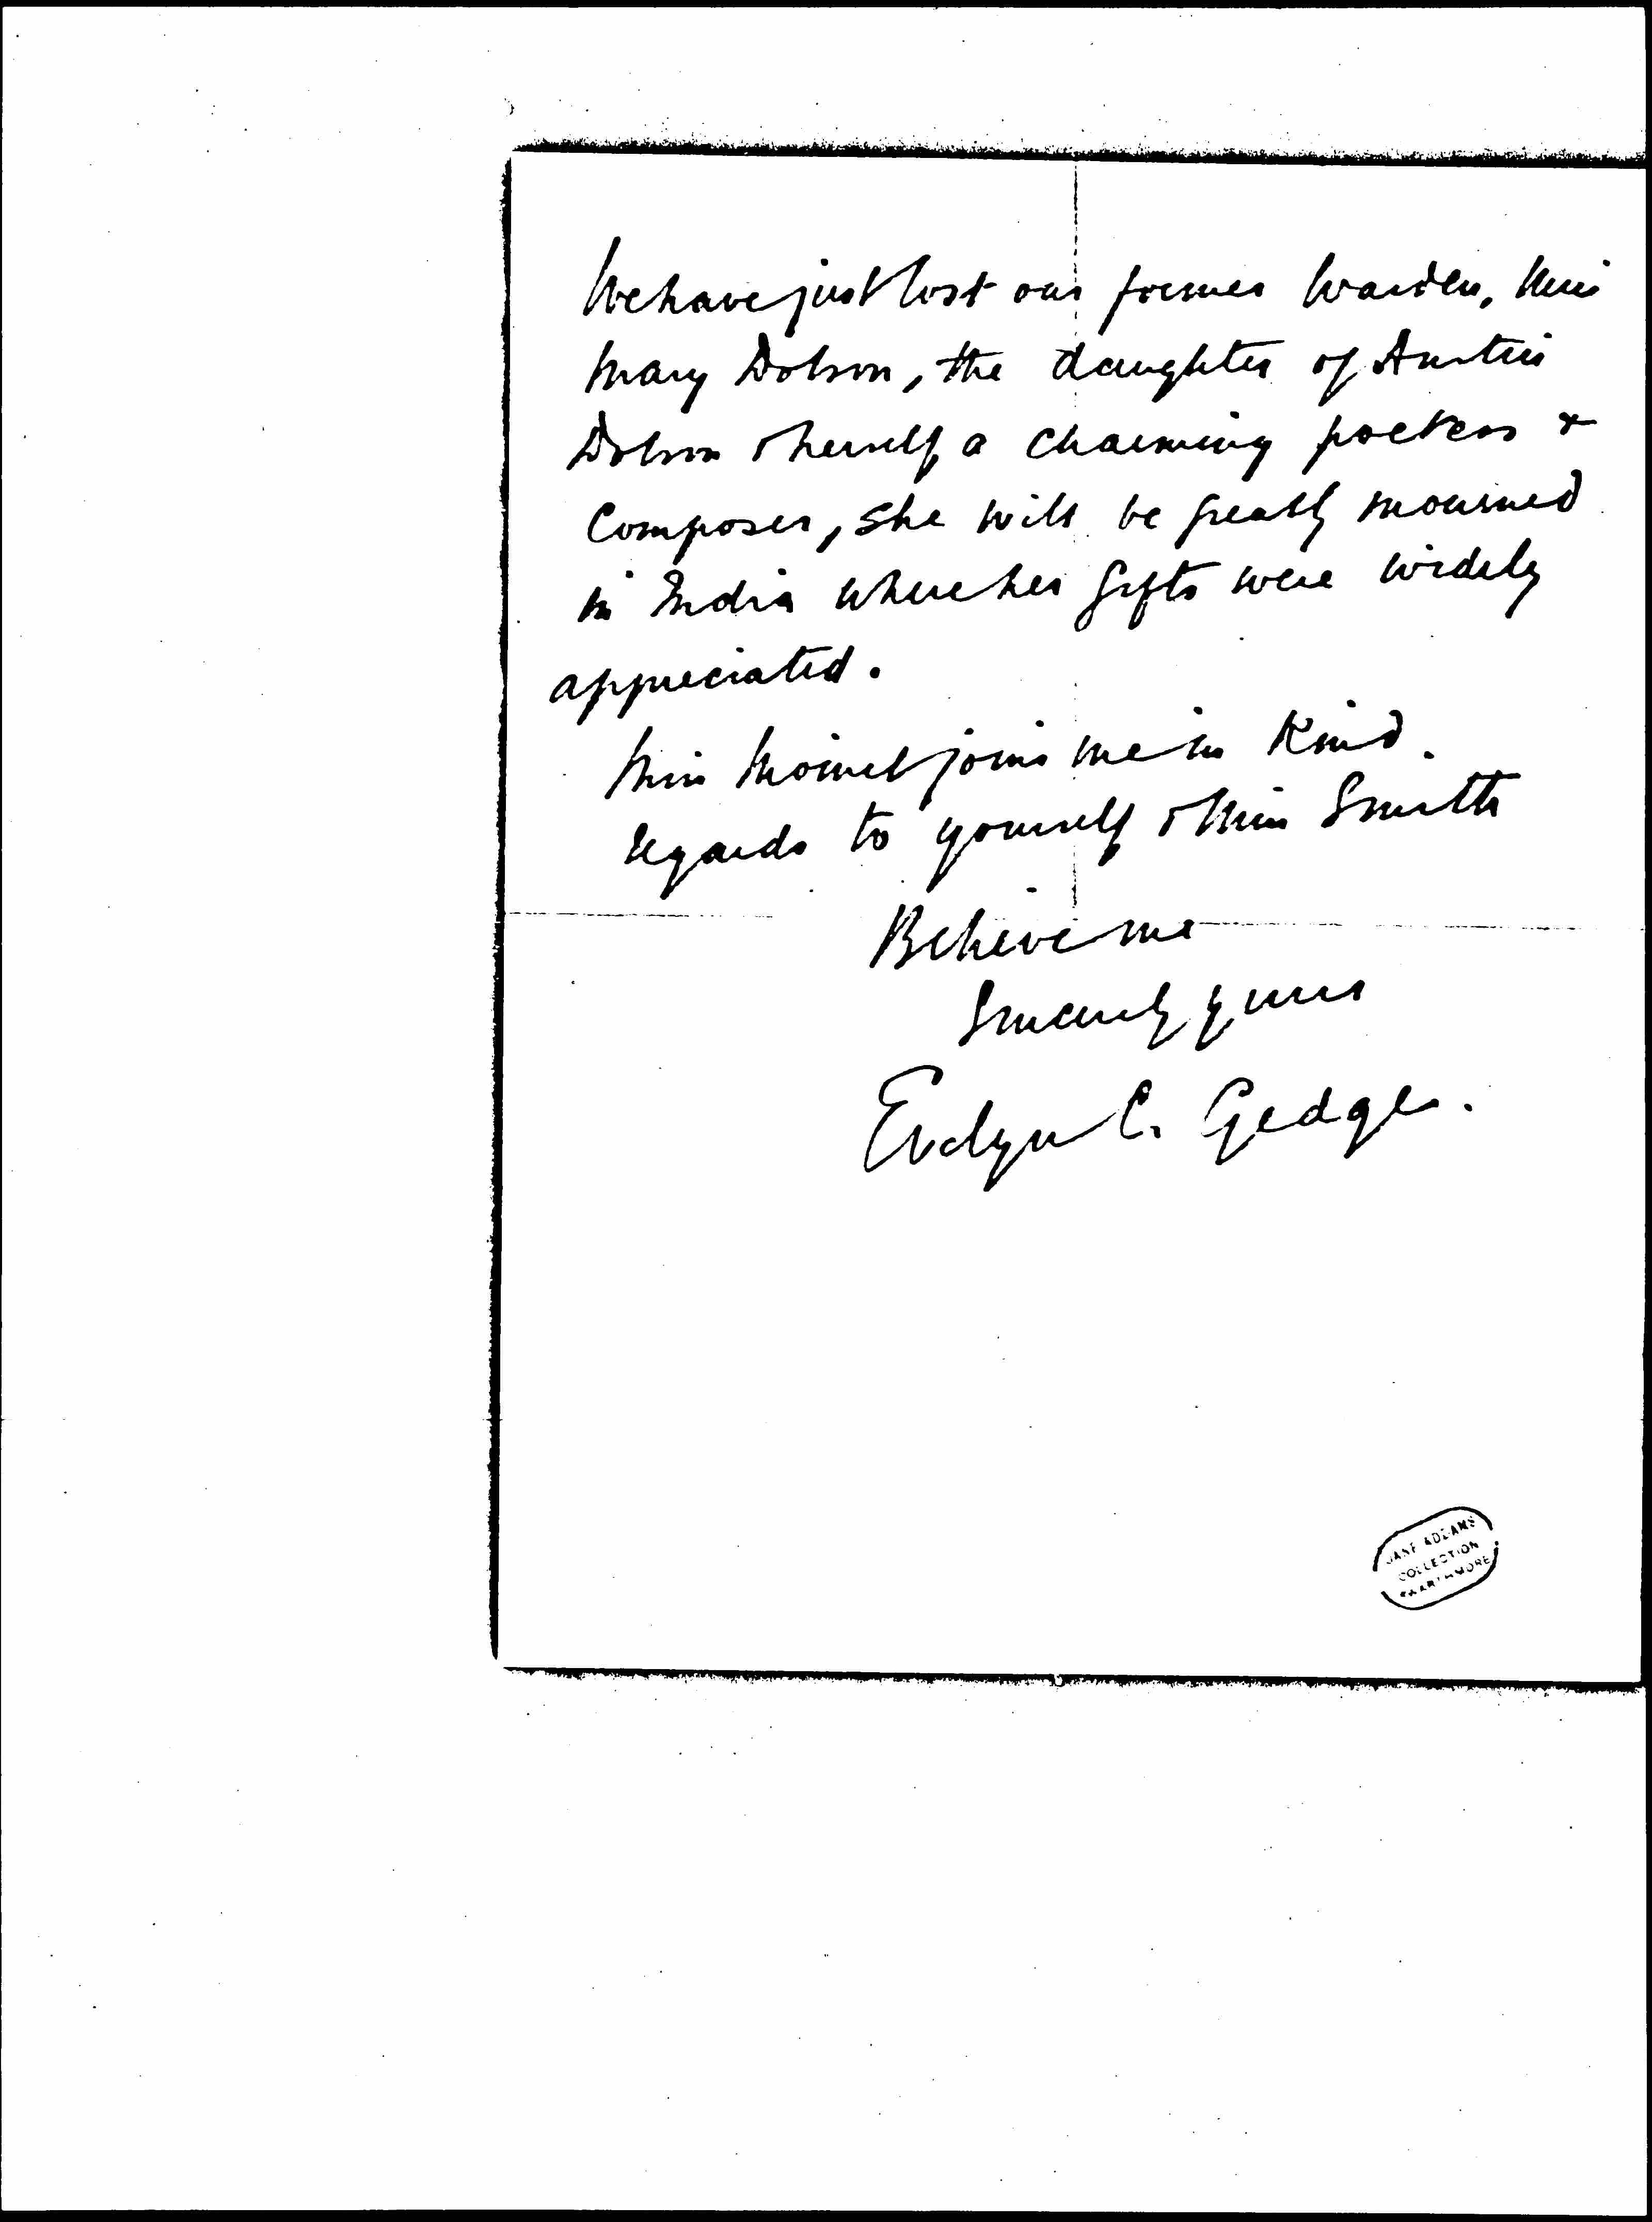 We have just lost our former Warden, Miss
Mary Dobson, the daughter of Austin
Dobson & herself a charming poetess &
Composer, She will be greatly mourned
in India where her gifts were widely
appreciated.
Miss joins me in Kind
regards to yourself & Miss Smith
Believe me
Sincerely yours
Evelyn C. Gedge.
JANE ADDAMS
COLLECTION
SWARTHMORE